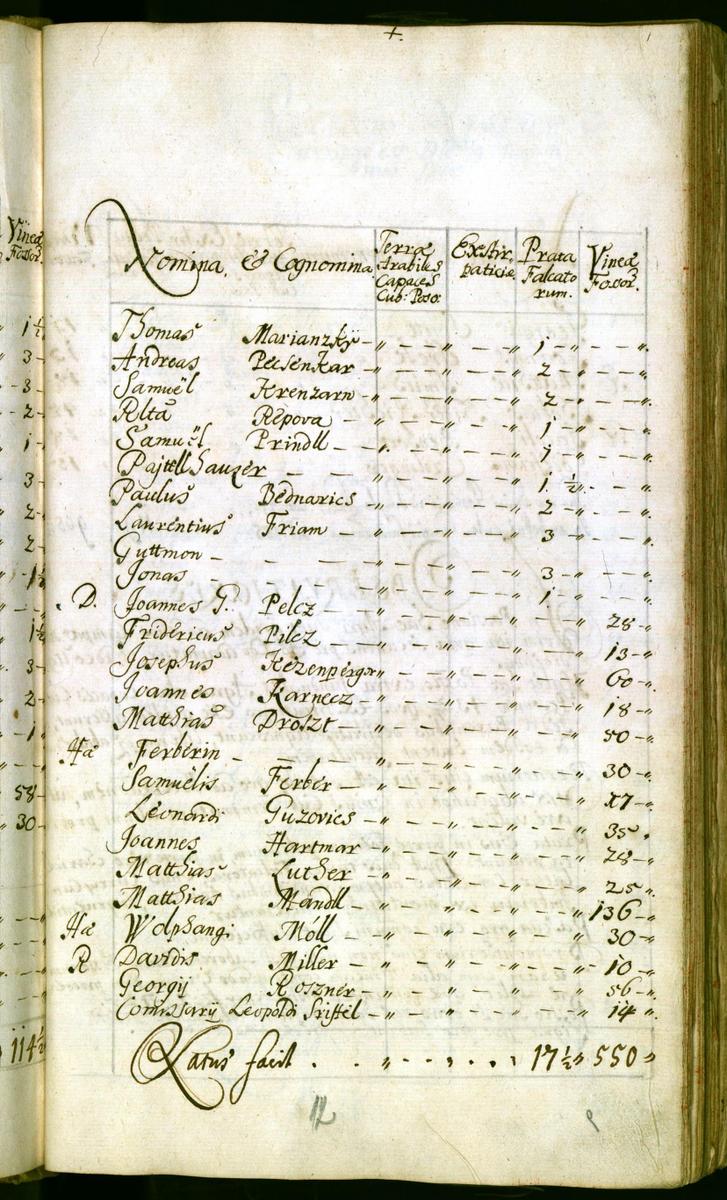 Vineæ
Fosor.
1 ½
3 -
3 -
2 -
1 -
3 -
2 -
2 -
1 ½
1 ½
3 -
2 -
1 -
58 -
30 -
114 ½
Nomina, & Cognomina Terræ Arabiles Capaces Cub: Poso: Exstirpaticiæ Prata Falcatorum. Vineæ Fosor.
Thomas Marianzky - " - - " - - " 1 - " - - ".
Andreas Pecsenkar " - - " - - " 2 - " - - ".
Samuël Krenzarn " - - " - - " 2 - " - - ".
Alta Repova - " - - " - - " 1 - " - - ".
Samuël Prindll - " - - " - - " 1 - " - - ".
Pajtellhauzer - - - " - - " - - " 1 ½ " - - ".
Paulus Bednarics " - - " - - " 2 - " - - ".
Laurentius Friam - " - - " - - " 3 - " - - ".
Guttmon - - - - " - - " - - " 3 - " - - ".
Jonas - - - - " - - " - - " 1 - " - - ".
D. Joannes G. Pelcz - " - - " - - " - - " 28 - ".
Fridericus Pilcz - " - - " - - " - - " 13 - ".
Josephus Kezenperger " - - " - - " - - " 60 - ".
Joannes Karnecz - " - - " - - " - - " 18 - ".
Matthias Droszt - " - - " - - " - - " 50 - ".
Hæ Ferberin - - - - " - - " - - " - - " 30 - ".
Samuëlis Ferber - " - - " - - " - - " 17 - ".
Leonardi Guzovics " - - " - - " - - " 35 ".
Joannes Hartmar " - - " - - " - - " 28 - ".
Matthias Luther - " - - " - - " - - " 25 - ".
Matthias Mandll - " - - " - - " - - " 136 - ".
Hæ Wolphangi Möll - " - - " - - " - - " 30 - ".
R Davidis Miller - " - - " - - " - - " 10 - ".
Georgij Roszner - " - - " - - " - - " 56 - ".
Comissarij Leopoldi Sriftel - " - - " - - " - - " 14 - ".
Latus facit . . " . . . " . . . 17 ½ " 550 "
12